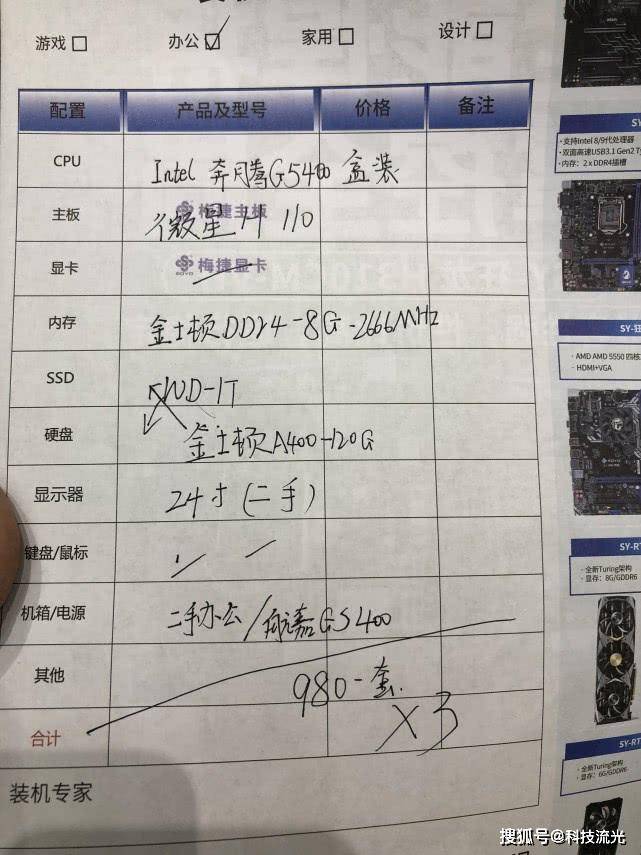 游戏□ 办公☑ 家用□ 设计□
配置 产品及型号 价格 备注
CPU Intel 奔腾G5400 盒装
主板 梅捷主板 微星H 110
显卡 SOYO 梅捷显卡
内存 金士顿DDR4-8G-2666MHz
SSD WD-1T
硬盘 金士顿A400-120G
显示器 24寸(二手)
键盘/鼠标
机箱/电源 二手办公/航嘉GS400
其他 980一套
合计 X3
装机专家
SY
·支持Intel 8/9代处理器
·双面高速USB3.1 Gen2 Ty
·内存: 2 x DDR4插槽
SY-狂
· AMD AMD 5550 四核
· HDMI+VGA
SY-RT
· 全新Turing架构
· 显存: 8G/GDDR6
SY-RT
· 全新Turing架构
· 显存: 6G/GDDR6
搜狐号@科技流光